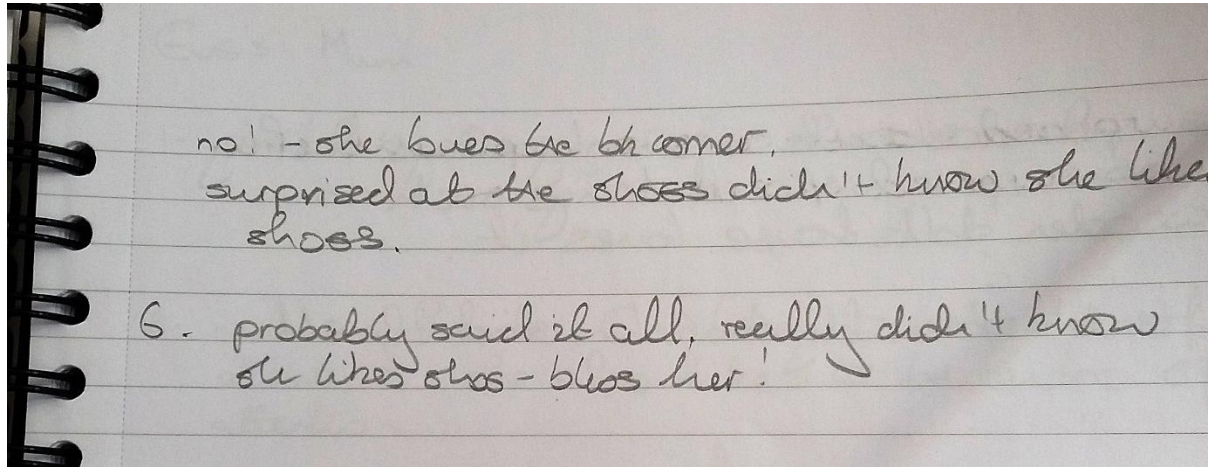 no! - she loves the bh corner.
surprised at the shoes didn't know she like
shoes.
6. probably said it all, really didn't know
she likes shos - bless her!